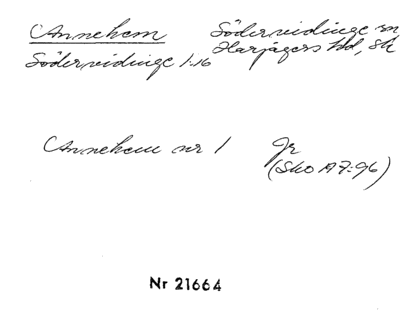 Annehem Södervidinge sn
Harjagers hd, Sk
Södervidinge 1:16
Annehem nr 1 Gr
(SkO A 7:96)
Nr 21664